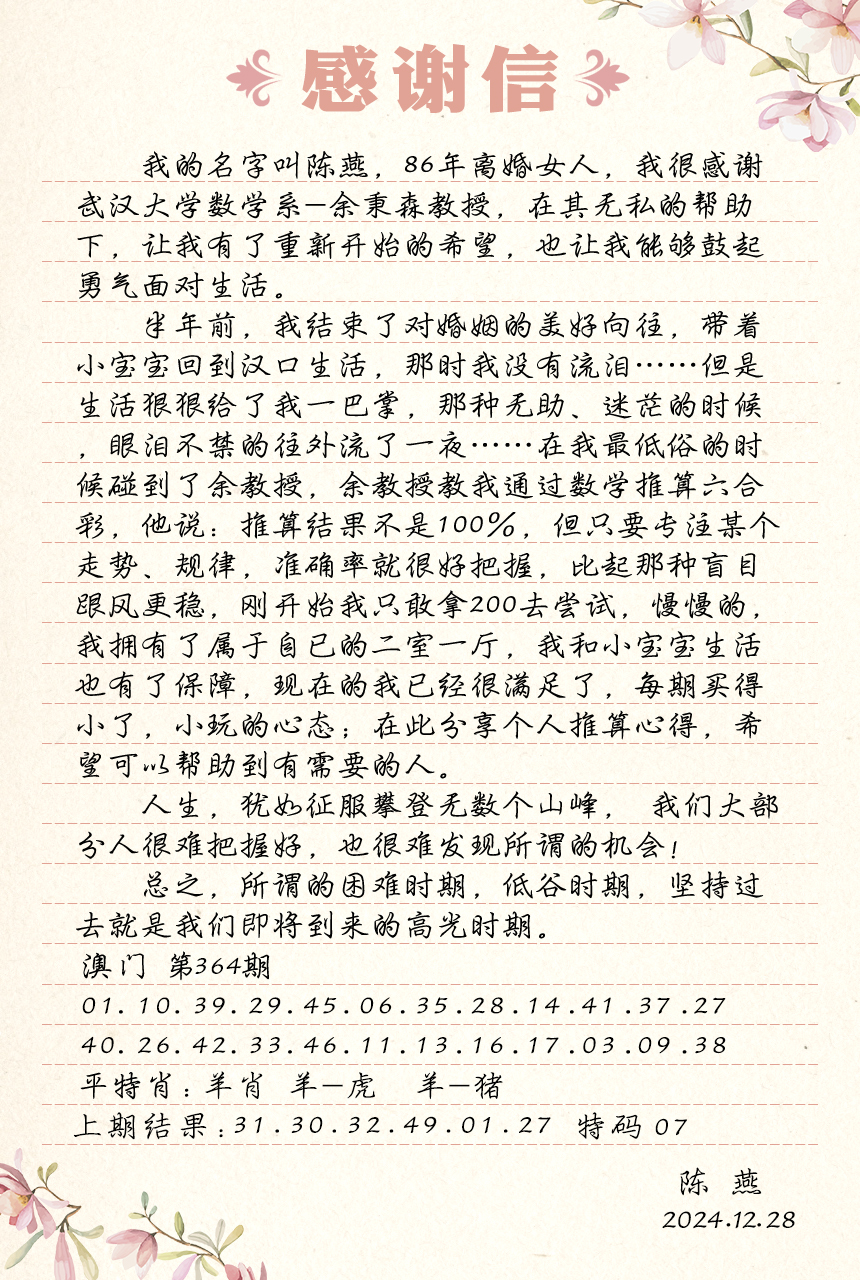 感谢信
我的名字叫陈燕，86年离婚女人，我很感谢
武汉大学数学系—余秉森教授，在其无私的帮助
下，让我有了重新开始的希望，也让我能够鼓起
勇气面对生活。
半年前，我结束了对婚姻的美好向往，带着
小宝宝回到汉口生活，那时我没有流泪……但是
生活狠狠给了我一巴掌，那种无助、迷茫的时候
，眼泪不禁的往外流了一夜……在我最低俗的时
候碰到了余教授，余教授教我通过数学推算六合
彩，他说：推算结果不是100%，但只要专注某个
走势、规律，准确率就很好把握，比起那种盲目
跟风更稳，刚开始我只敢拿200去尝试，慢慢的，
我拥有了属于自已的二室一厅，我和小宝宝生活
也有了保障，现在的我已经很满足了，每期买得
小了，小玩的心态；在此分享个人推算心得，希
望可以帮助到有需要的人。
人生，犹如征服攀登无数个山峰， 我们大部
分人很难把握好，也很难发现所谓的机会！
总之，所谓的困难时期，低谷时期，坚持过
去就是我们即将到来的高光时期。
澳门 第364期
01.10.39.29.45.06.35.28.14.41.37.27
40.26.42.33.46.11.13.16.17.03.09.38
平特肖：羊肖 羊—虎 羊—猪
上期结果：31.30.32.49.01.27 特码 07
陈 燕
2024.12.28